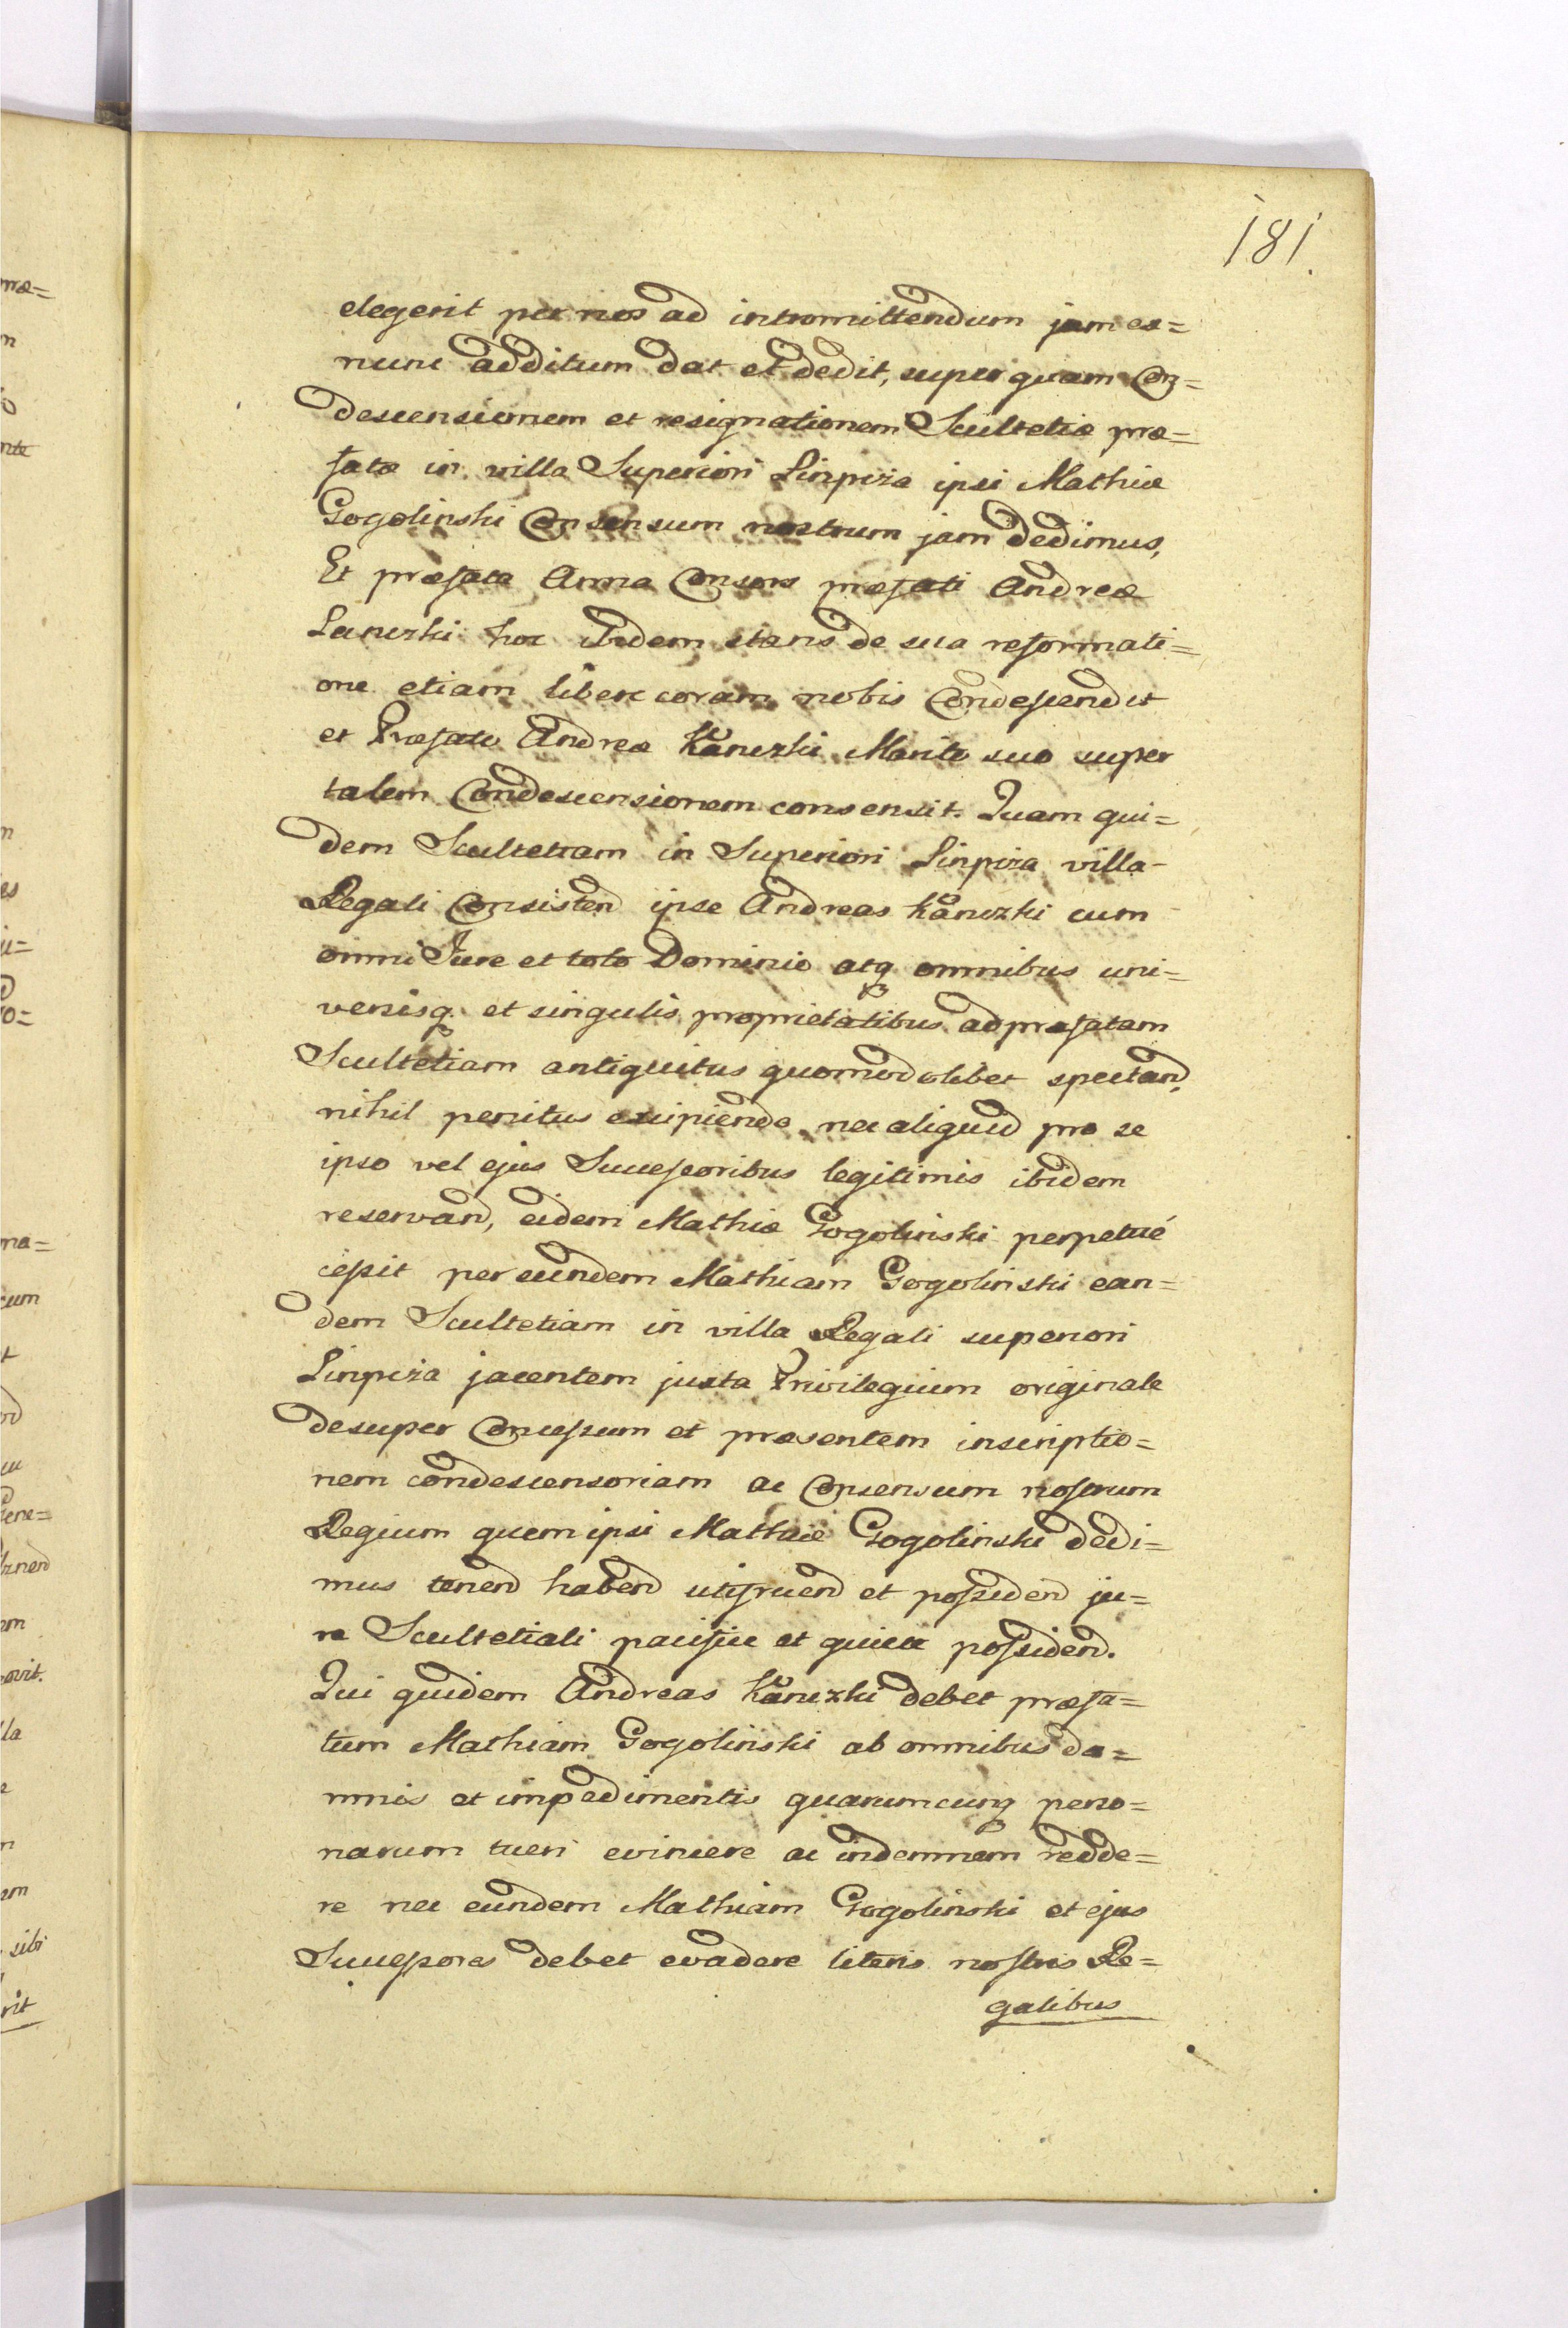 181.
elegerit per nos ad intromittendum jam ex=
nunc additum dat et dedit, super quam Con=
descensionem et resignationem Scultetiæ præ=
fatæ in villa Superiori Linpiza ipsi Mathiæ
Gogolinski Consensum nostrum jam dedimus,
Et præfata Anna Consors præfati Andreæ
Kanezki hoc ibidem stans de sua reformati=
one etiam libere coram nobis Condescendit
et Præfato Andreæ Kanezki Marito suo super
talem Condescensionem consensit. Quam qui=
dem Scultetiam in Superiori Linpiza villa
Regali Consistend ipse Andreas Kanezki cum
omni Jure et toto Dominio atq omnibus uni=
versisq. et singulis proprietatibus ad præfatam
Scultetiam antiquitus quomodolibet spectand,
nihil penitus excipiendo nec aliquid pro se
ipso vel ejus Successoribus legitimis ibidem
reservand, eidem Mathiæ Gogolinski perpetué
cessit per eundem Mathiam Gogolinski ean=
dem Scultetiam in villa Regali superiori
Linpiza jacentem juxta Privilegium originale
desuper Concessum et præsentem inscriptio=
nem condescensoriam ac Consensum nostrum
Regium quem ipsi Mathiæ Gogolinski dedi=
mus tenend habend utifruend et possidend ju=
re Scultetiali pacifice et quiete possidend.
Qui quidem Andreas Kanezki debet præfa=
tum Mathiam Gogolinski ab omnibus da=
mnis et impedimentis quarumcunq perso=
narum tueri evincere ac indemnem redde=
re nec eundem Mathiam Gogolinski et ejus
Successores debet evadere literis nostris Re=
galibus